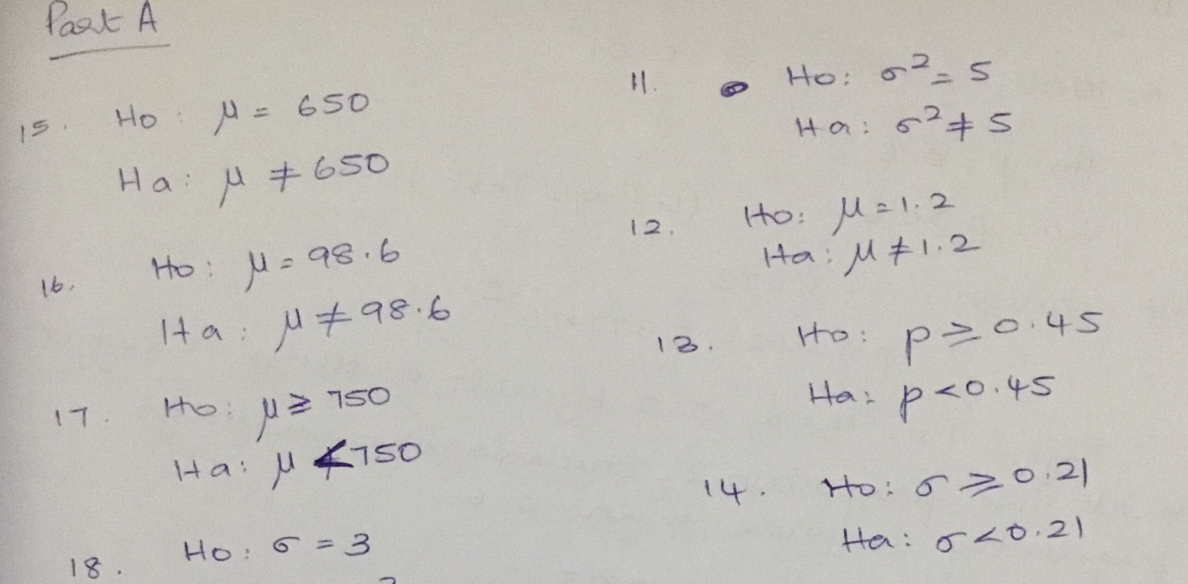 Part A
15. Ho: μ = 650
Ha: μ ≠ 650
16. Ho: μ = 98.6
Ha: μ ≠ 98.6
17. Ho: μ ≥ 750
Ha: μ < 750
18. Ho: σ = 3
11. Ho: σ² = 5
Ha: σ² ≠ 5
12. Ho: μ = 1.2
Ha: μ ≠ 1.2
13. Ho: p ≥ 0.45
Ha: p < 0.45
14. Ho: σ ≥ 0.21
Ha: σ < 0.21